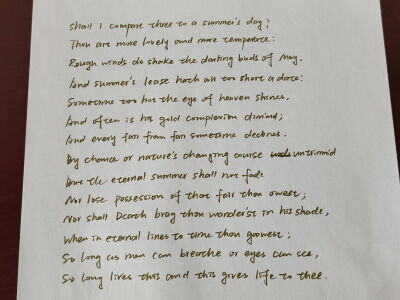 Shall I compare thee to a summer's day?
Thou art more lovely and more temperate:
Rough winds do shake the darling buds of May.
And summer's lease hath all too short a date:
Sometime too hot the eye of heaven shines.
And often is his gold complexion dimmid;
And every fair from fair sometime declines.
By chance or nature's changing course untrimmid
But the eternal summer shall not fade
Nor lose possession of that fair thou owest;
Nor shall Death brag thou wander'st in his shade,
When in eternal lines to time thou growest;
So long as man can breathe or eyes can see,
So long lives this and this gives life to thee.